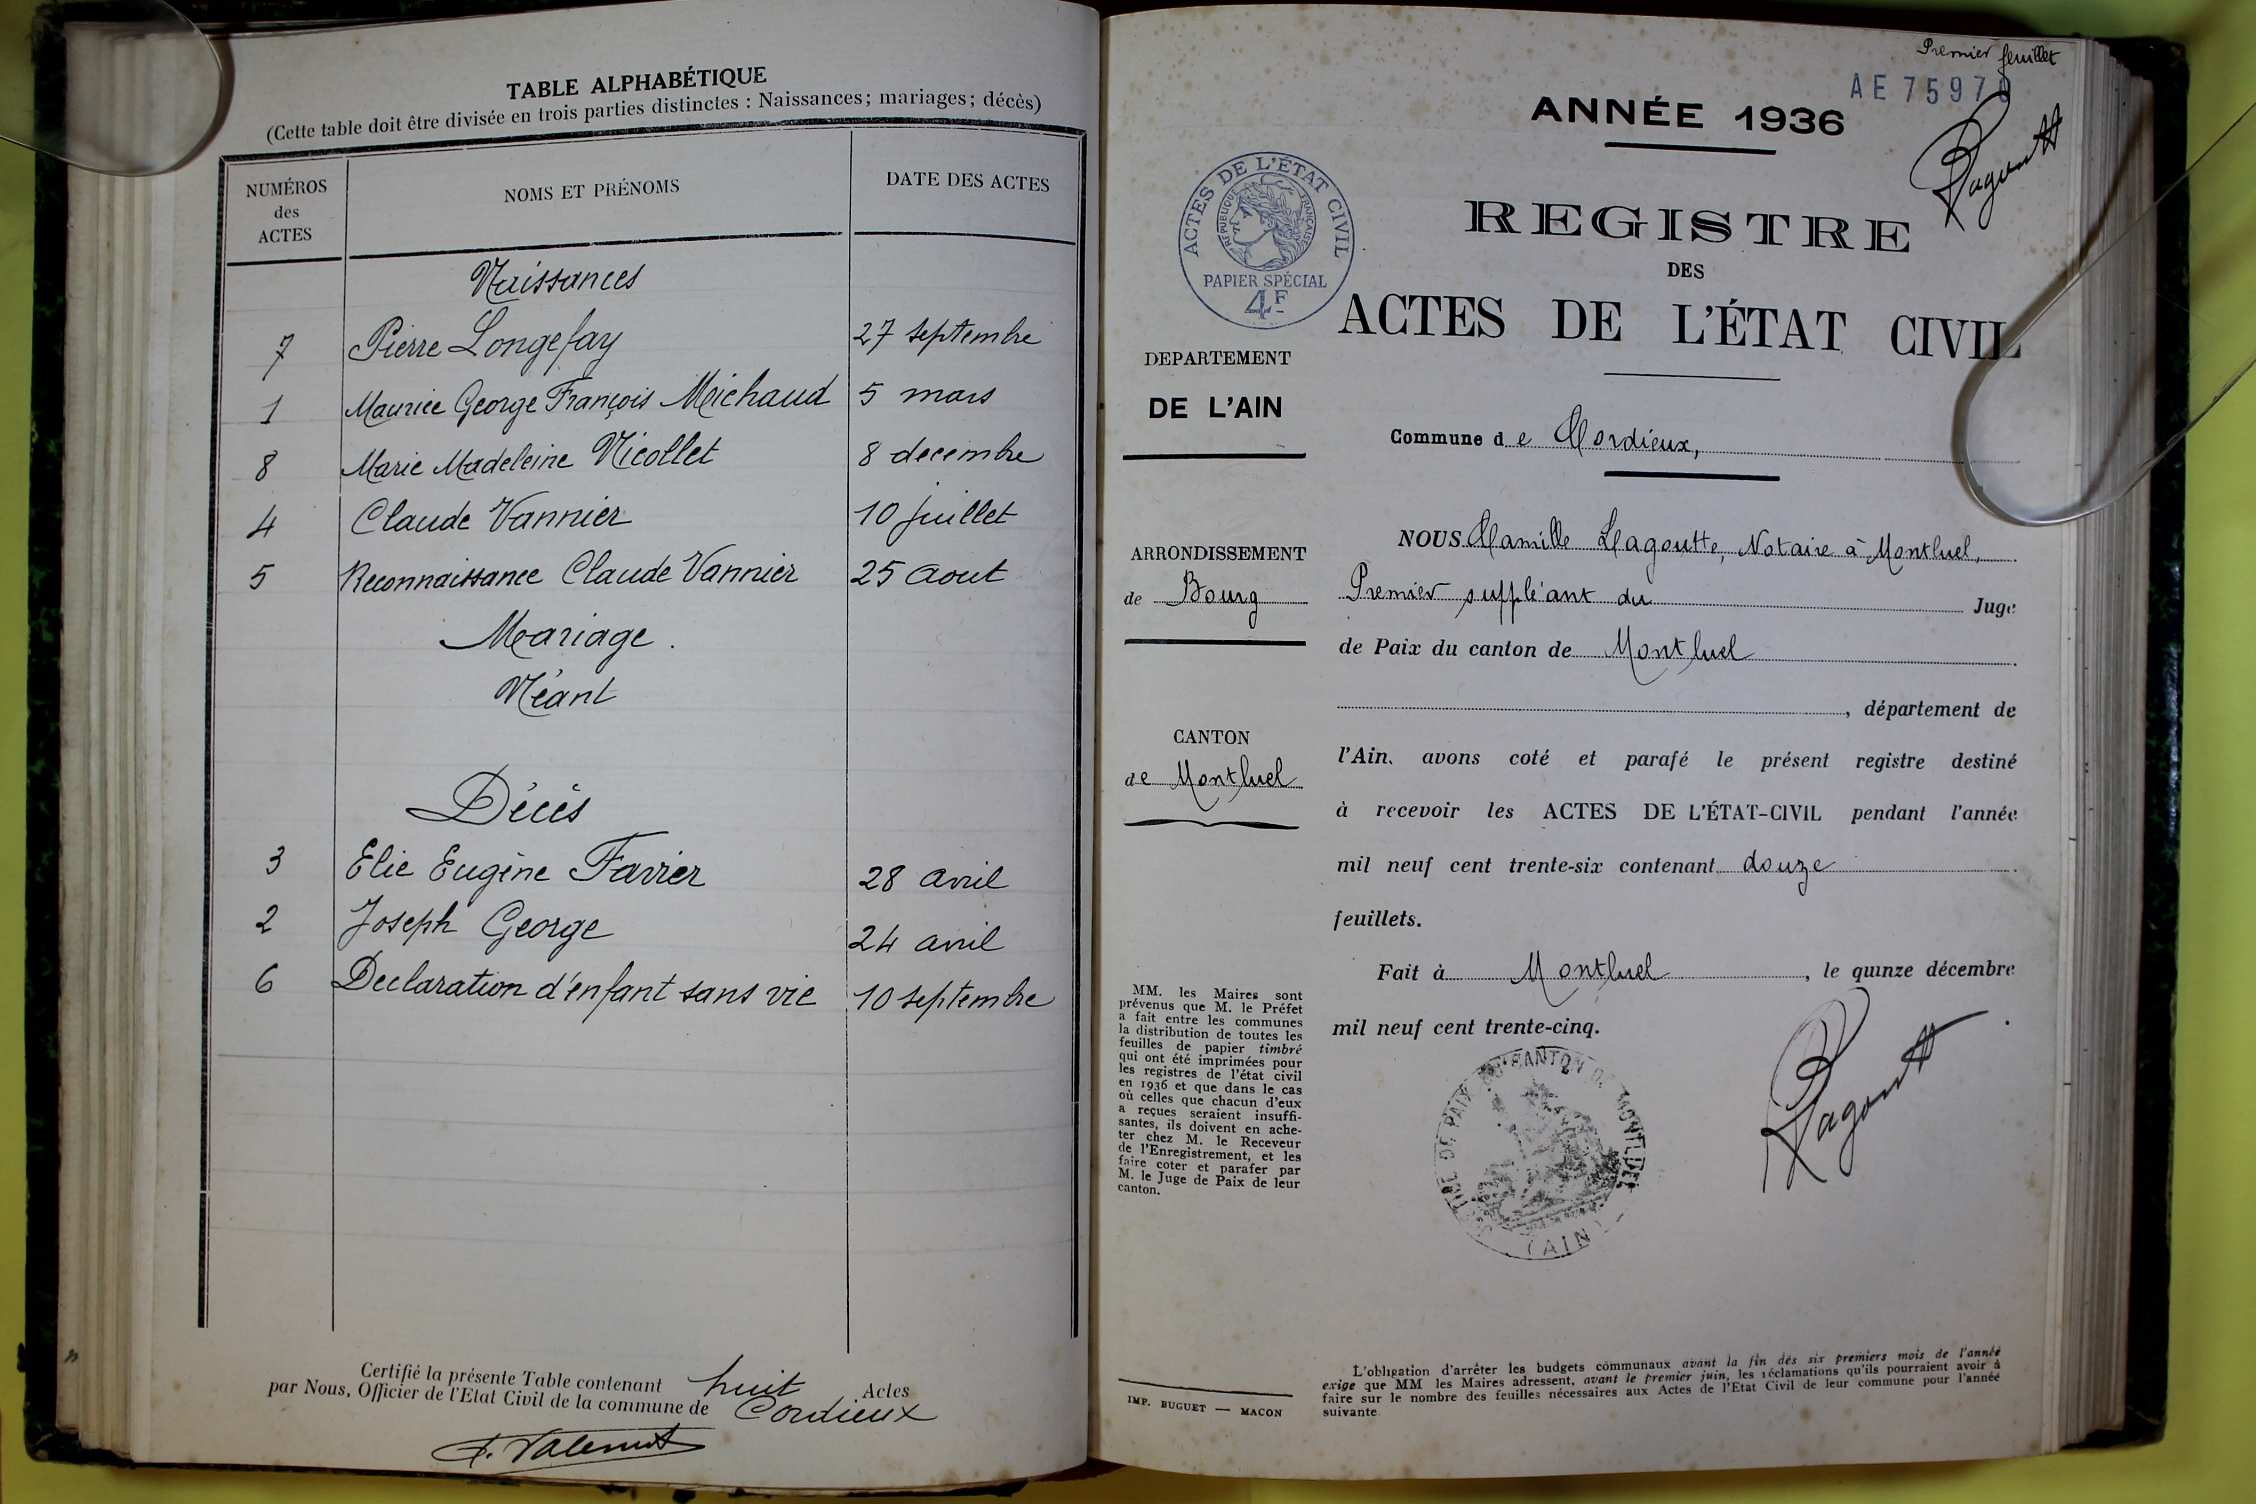 TABLE ALPHABÉTIQUE
(Cette table doit être divisée en trois parties distinctes : Naissances; mariages; décès)
NUMÉROS des ACTES NOMS ET PRÉNOMS DATE DES ACTES
Naissances
7 Pierre Longefay 27 septembre
1 Maurice George François Michaud 5 mars
8 Marie Madeleine Nicollet 8 decembre
4 Claude Vannier 10 juillet
5 Reconnaissance Claude Vannier 25 aout
Mariage.
Néant
Décès
3 Elie Eugène Favier 28 avril
2 Joseph George 24 avril
6 Declaration d'enfant sans vie 10 septembre
Certifié la présente Table contenant huit Actes
par Nous, Officier de l'Etat Civil de la commune de Cordieux
Premier feuillet
AE 75970
ANNÉE 1936
ACTES DE L'ÉTAT CIVIL
RÉPUBLIQUE FRANÇAISE
PAPIER SPÉCIAL
4F
REGISTRE
DES
ACTES DE L'ÉTAT CIVIL
DEPARTEMENT
DE L'AIN
ARRONDISSEMENT
de Bourg
CANTON
de Montluel
MM. les Maires sont
prévenus que M. le Préfet
a fait entre les communes
la distribution de toutes les
feuilles de papier timbré
qui ont été imprimées pour
les registres de l'état civil
en 1936 et que dans le cas
où celles que chacun d'eux
a reçues seraient insuffi-
santes, ils doivent en ache-
ter chez M. le Receveur
de l'Enregistrement, et les
faire coter et parafer par
M. le Juge de Paix de leur
canton.
IMP. BUGUET — MACON
Commune de Cordieux,
NOUS Camille Lagoutte, Notaire à Montluel,
Premier suppléant du Juge
de Paix du canton de Montluel
, département de
l'Ain, avons coté et parafé le présent registre destiné
à recevoir les ACTES DE L'ÉTAT-CIVIL pendant l'année
mil neuf cent trente-six contenant douze
feuillets.
Fait à Montluel, le quinze décembre
mil neuf cent trente-cinq.
Lagoutte
(AIN)
L'obligation d'arrêter les budgets communaux avant la fin des six premiers mois de l'année
exige que MM les Maires adressent, avant le premier juin, les réclamations qu'ils pourraient avoir à
faire sur le nombre des feuilles nécessaires aux Actes de l'Etat Civil de leur commune pour l'année
suivante